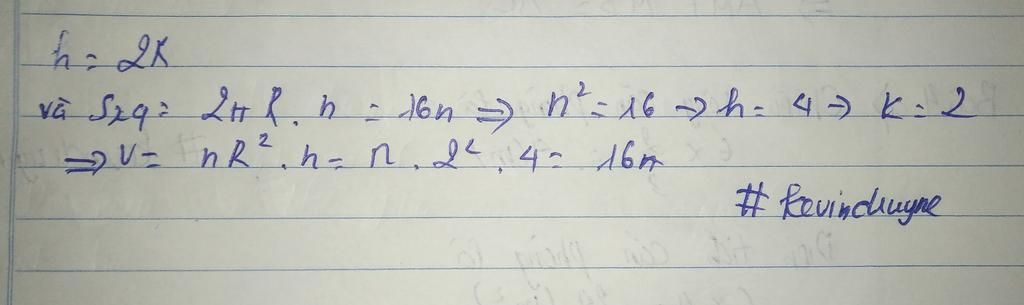 h = 2R
và Sxq = 2πR . h = 16π ⇒ h² = 16 → h = 4 → R = 2
⇒ V = πR² . h = π . 2² . 4 = 16π
# Kevinchuyne